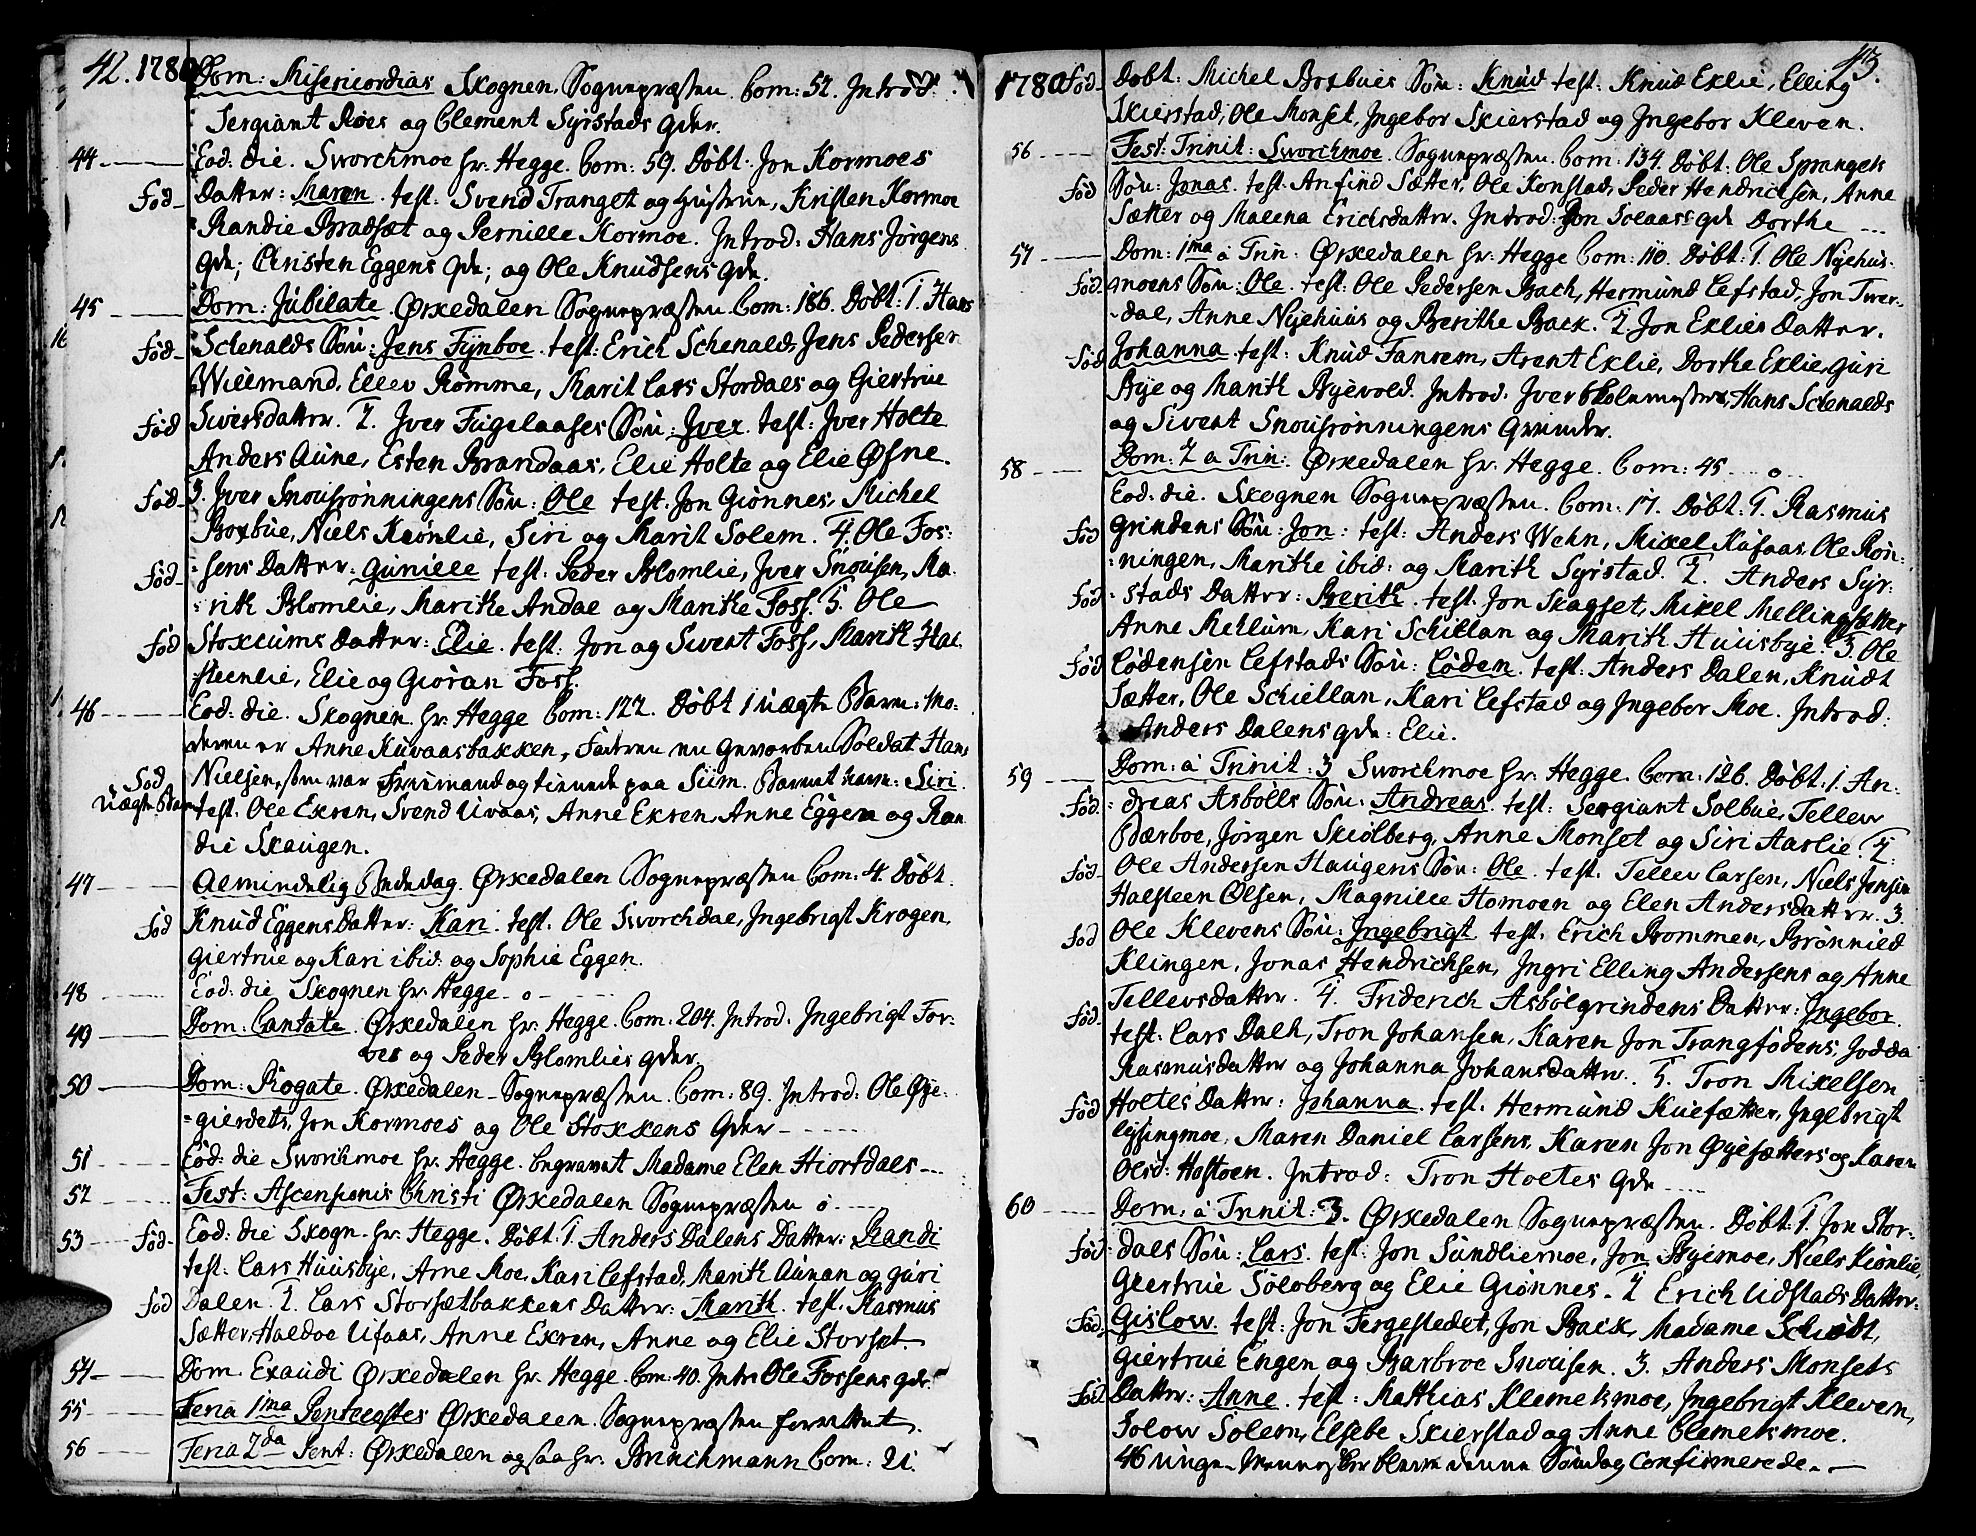 42. 1780 Dom: Misericordias Skognen, Sognepræsten Com: 52. Introd:
Sergiant Roes og Clement Syrstads gder.
44 Eod: die. Sworckmoe hr: Hegge. Com: 59. Døbt: Jon Kormoes
Fød Datter: Maren. test: Svend Tranget og Hustrue, Kristen Kormoe
Randie Bradset og Pernille Kormoe. Introd: Hans Jørgens
gde; Christen Eggens gde; og Ole Knudsens gde.
45 Dom: Jubilate. Ørkedalen Sognepræsten Com: 186. Døbt: 1. Hans
Fød Sclenalds Søn: Jens Fÿnboe. test: Erich Schenald, Jens Pedersen
Willmand, Ellev Romme, Marit Lars Stordals og Giertrue
Fød Siversdatter. 2. Jver Fugelaases Søn: Jver. test: Jver Holte
Anders Aune, Esten Brandaas, Elie Holte og Elie Øfne.
Fød 3. Jver Snousrønningens Søn: Ole test: Jon Giønnes, Michel
Boxbue, Niels Kiønlie, Siri og Marit Solem. 4. Ole Fos:
Fød sens Datter: Gunille test: Peder Blomlie, Jver Snousen, Ma-
rith Blomlie, Marithe Andal og Marithe Foss. 5. Ole
Fød Stoxiums Datter: Elie. test: Jon og Sivert Foss, Marith Hal
steenlie, Elie og Giøran Foss.
46 Eod: die. Skognen hr: Hegge Com: 122. Døbt 1 uægte Barn: Mo:
deren er Anne Kuvaasbakken, Fadren en gevorben Soldat Hans
Fød Nielsen, som var Friemand og tienede paa Siim. Barnet navn: Siri
Uægte Barn test: Ole Exren, Svend Uvaas, Anne Exren, Anne Eggen og Ran
die Skaugen.
47 Almindelig Bededag. Ørkedalen Sognepræsten Com: 4. Døbt.
Fød Knud Eggens Datter: Kari. test: Ole Sworchdal, Ingebrigt Krogen,
giertrue og Kari ibid: og Sophie Eggen.
48 Eod: die Skognen hr: Hegge - o -
49 Dom: Cantate. Ørkedalen hr: Hegge. Com: 204. Introd. Ingebrigt For-
ves og Peder Blomlies gder.
50 Dom: Rogate. Ørkedalen Sognepræsten. Com: 89. Introd: Ole Øie-
gierdets, Jon Kormoes og Ole Stokkens Gder
51 Eod: die Sworckmoe hr: Hegge. begravet Madame Elen Hiortdals
52 Fest: Ascensionis Christi Ørkedalen Sognepræsten o.
53 Fød Eod: die Skogn. hr: Hegge. Døbt: 1. Anders Dalens Datter: Randi
test: Lars Huusbye, Arne Moe, Kari Lefstad, Marith Aunan og Guri
Fød Dalen. 2. Lars Storsætbakkens Datter: Marith. test. Rasmus
Sætter, Haldoe Ufaas, Anne Exren, Anne og Elie Storset.
54 Dom. Exaudi Ørkedalen hr: Hegge. Com: 40. Intr: Ole Fossens gde.
55 Feria 1ma Pentecostes Ørkedalen. Sognepræsten forrettet.
56 Feria 2da Pent: Ørkedalen ogsaa hr: Brüchmann Com: 21.
43.
1780 Fød Døbt: Michel Boxbues Søn: Knud test: Knud Exlie, Elling
Skierstad, Ole Monset, Ingebor Skierstad og Ingebor Kleven.
56 Fest: Trinit: Sworckmoe. Sognepræsten. Com: 134. Døbt: Ole Sprangets
Fød Søn: Jonas. test: Anfind Sætter, Ole Konstad, Peder Hendrichsen, Anne
Sætter og Malena Erichsdatter. Introd: Jon Solaas gde Dorthe
57 Dom: 1ma a Trin: Ørkedalen hr: Hegge Com: 110. Døbt: 1. Ole Nyehus-
Fød moens Søn: Ole. test: Ole Pedersen Bach, Hermund Lefstad, Jon Twer-
dal, Anne Nyehuus og Berithe Back. 2 Jon Exlies Datter.
Fød Johanna. test: Knud Fanrem, Arent Exlie, Dorthe Exlie, Guri
Bye og Marith Byevold. Introd. Jver Skolemesters, Hans Sclenalds
og Sivert Snousrønningens Qvinder.
58 Dom: 2 a Trin: Ørkedalen hr: Hegge. Com: 45. o
Eod: die. Skognen Sognepræsten. Com: 17. Døbt: 1. Rasmus
Fød Grindens Søn: Jon: test: Anders Wehn, Mikel Kufaas, Ole Røn:
ningen, Marithe ibid: og Marith Syrstad. 2. Anders Syr:
Fød stads Datter: Berith. test. Jon Skagset, Mikel Mellingsætter
Anne Mellum, Kari Schillan og Marith Huusbye. 3. Ole
Fød Lødensen Lefstads Søn: Løden. test: Anders Dalen, Knudt
Sætter, Ole Schiellan, Kari Lefstad og Ingebor Moe. Introd:
Anders Dalens gde: Eli.
59 Dom: a Trinit: 3 Sworckmoe hr: Hegge. Com: 126. Døbt: 1. An:
Fød dreas Asbølls Søn: Andreas. test: Sergiant Solbue, Tellev
Bærboe, Jørgen Skiølberg, Anne Monset og Siri Aarlie. 2.
Fød Ole Andersen Haugens Søn: Ole. test. Tellev Larsen, Niels Jensen
Halsteen Olsen, Magnille Homoen og Elen Andersdatter. 3.
Fød Ole Klevens Søn: Ingebrigt test. Erich Brommen, Brønnild
Klingen, Jonas Hendrichsen, Ingri Elling Andersens og Anne
Tellevsdatter. 4. Friderich Asbølgrindens Datter: Ingebor.
Fød test: Lars Dalh, Tron Johansen, Karen Jon Trangfødens, Jodda
Rasmusdatter og Johanna Johansdatter. 5. Tron Mikelsen
Fød Holtes Datter: Johanna. test. Hermund Kuesætter, Ingebrigt
Lysingmoe, Maren Daniel Larsens, Karen Jon Øyesætters og Karen
Olsd: Hostoen. Introd: Tron Holtes gde
60 Dom, a Trinit: 3. Ørkedalen Sognepræsten. Døbt: 1. Jon Stor-
Fød dals Søn: Lars. test: Jon Sundliemoe, Jon Byemoe, Niels Kiønlie,
Giertrue Soloberg og Elie Giønnes. 2 Erich Udstads Datter:
Fød Gislow. test: Jon Fergestedet, Jon Back, Madame Schiøbt,
Giertrue Engen og Barbroe Snousen. 3. Anders Monsets
Fød Datter: Anne. test: Matthias Klemetsmoe, Ingebrigt Kleven,
Solow Solem, Elsebe Skierstad og Anne Clemetsmoe.
46 unge Mennesker bleve denne Søndag Confirmerede.